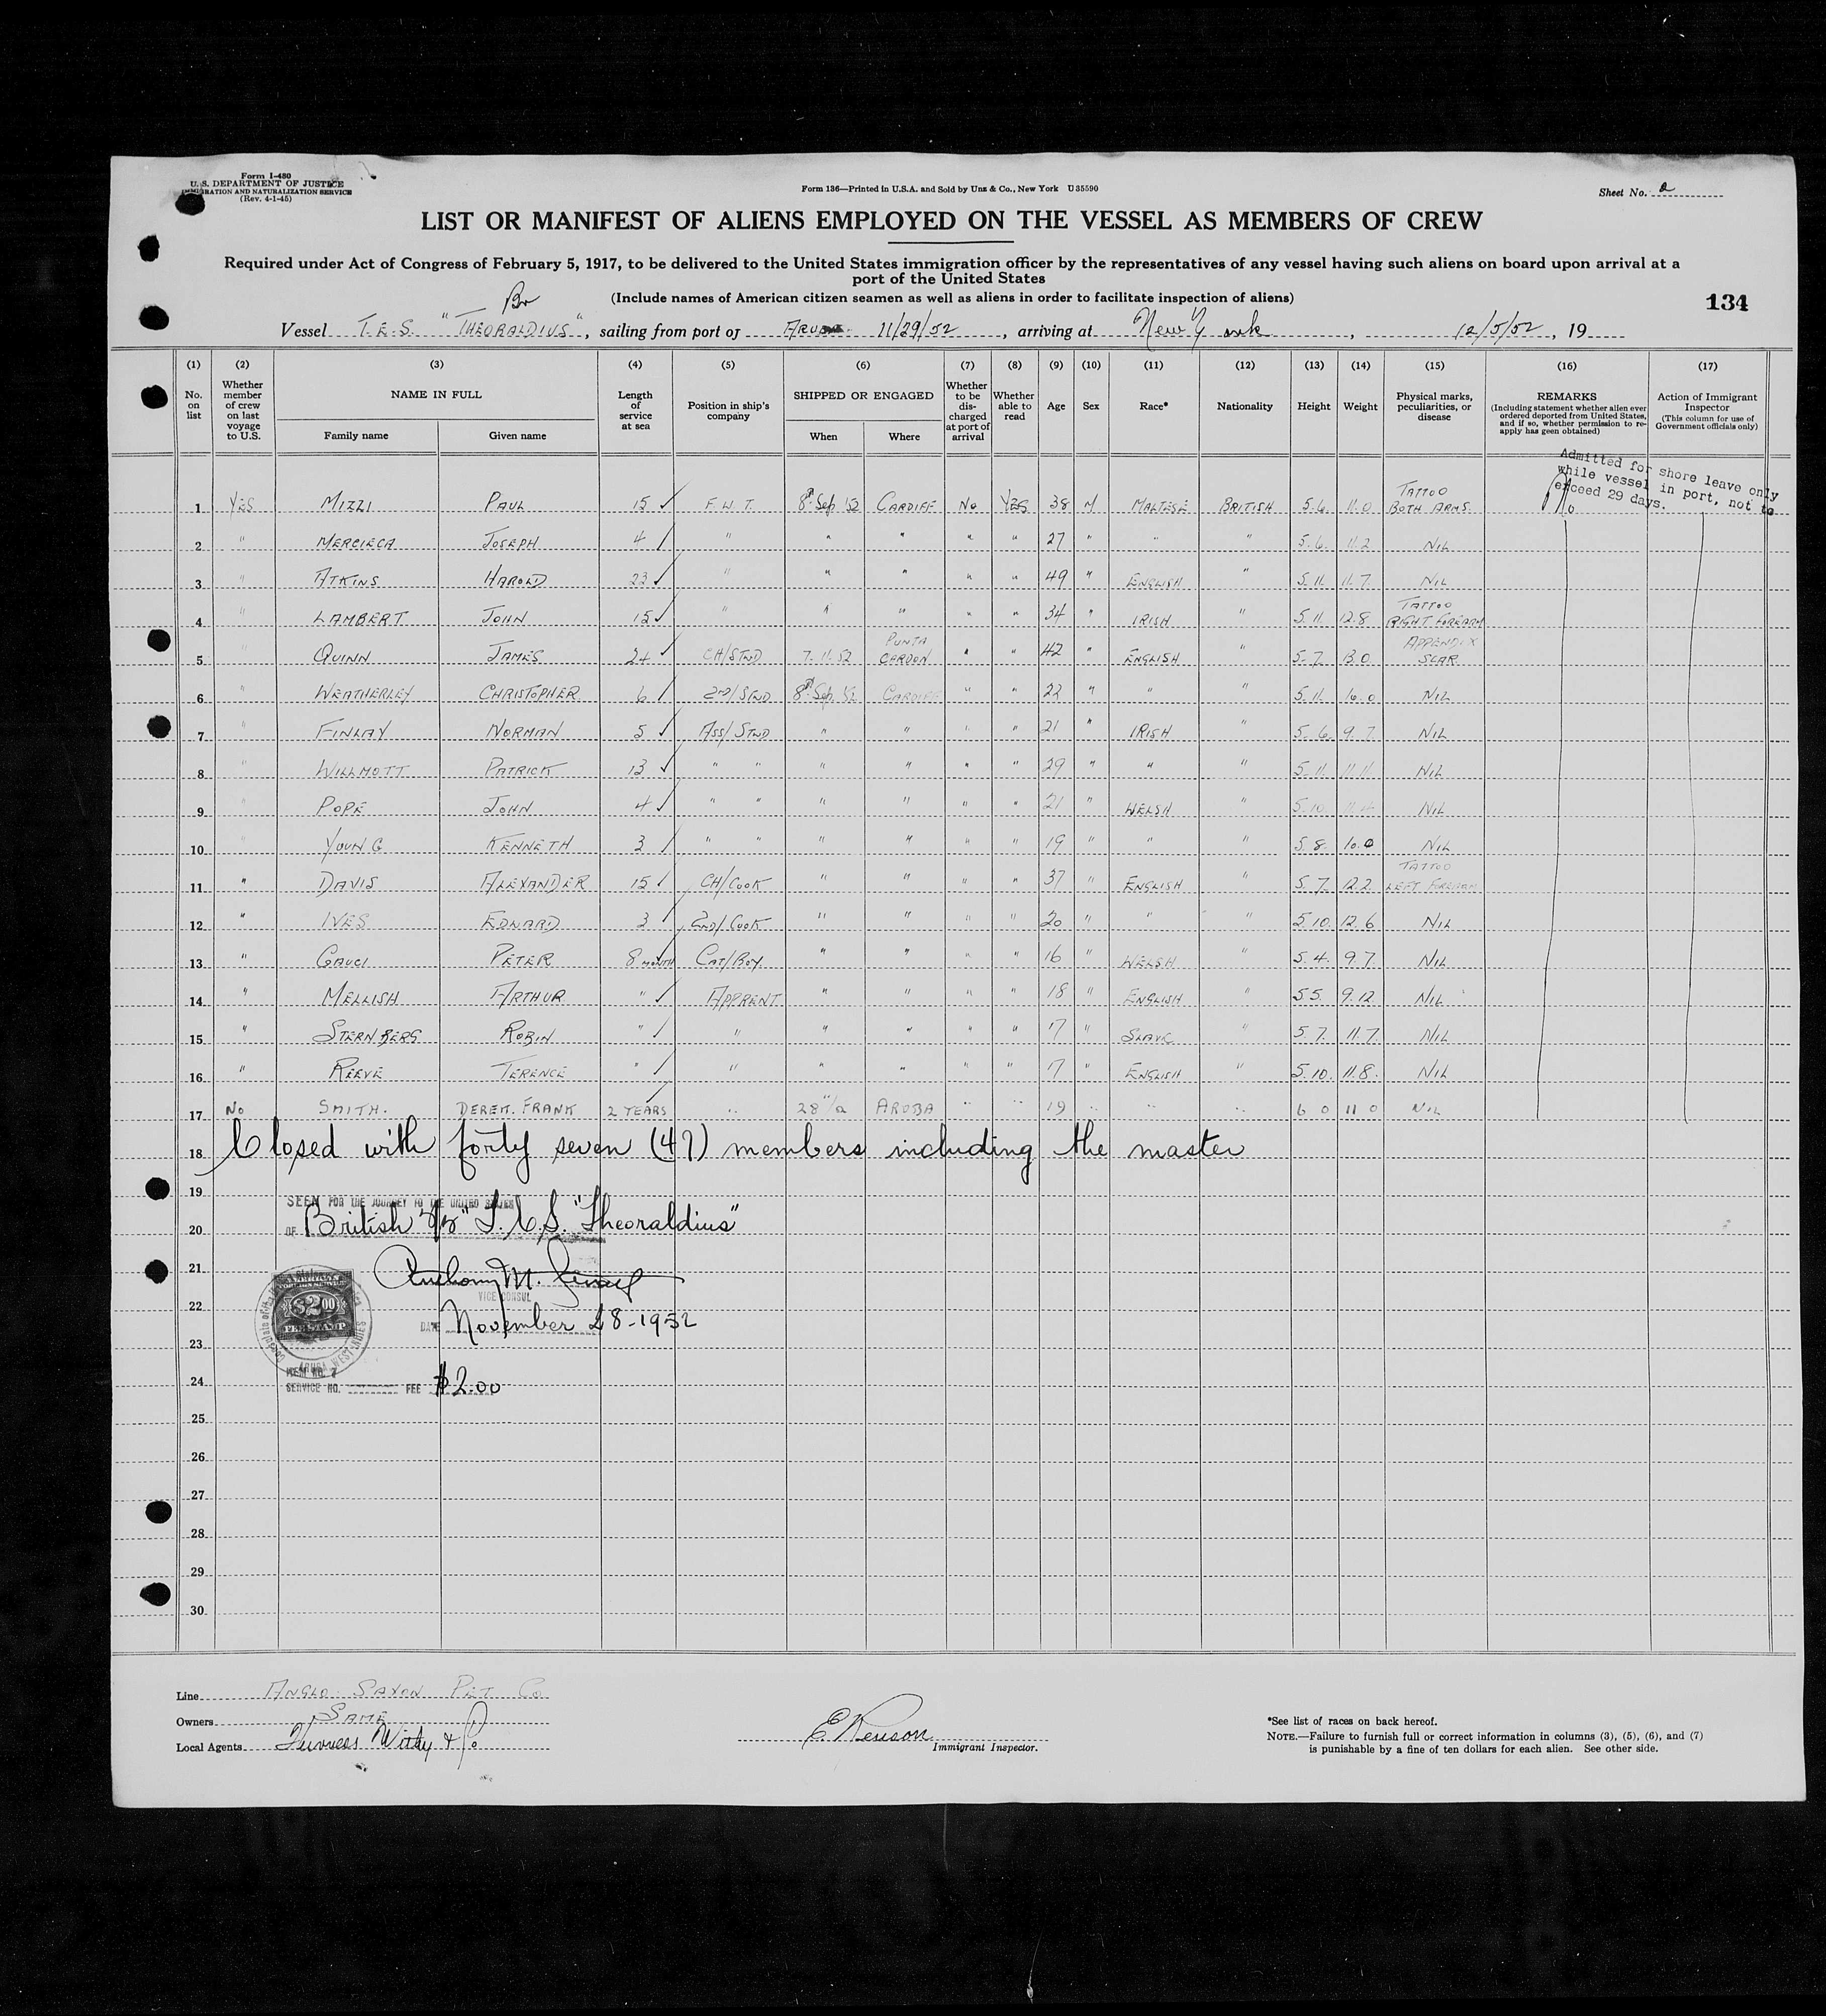 Form I-480
U. S. DEPARTMENT OF JUSTICE
IMMIGRATION AND NATURALIZATION SERVICE
(Rev. 4-1-45)
Form 136—Printed in U.S.A. and Sold by Unz & Co., New York U35590
Sheet No. 2
LIST OR MANIFEST OF ALIENS EMPLOYED ON THE VESSEL AS MEMBERS OF CREW
Required under Act of Congress of February 5, 1917, to be delivered to the United States immigration officer by the representatives of any vessel having such aliens on board upon arrival at a
port of the United States
(Include names of American citizen seamen as well as aliens in order to facilitate inspection of aliens)
134
Br
Vessel T.E.S. "THEORALDIUS", sailing from port of ARUBA 11/29/52, arriving at New York, 12/5/52, 19
(1) (2) (3) (4) (5) (6) (7) (8) (9) (10) (11) (12) (13) (14) (15) (16) (17)
No. on list
Whether member of crew on last voyage to U.S.
NAME IN FULL
Family name Given name
Length of service at sea
Position in ship's company
SHIPPED OR ENGAGED
When Where
Whether to be discharged at port of arrival
Whether able to read
Age Sex Race* Nationality Height Weight
Physical marks, peculiarities, or disease
REMARKS
(Including statement whether alien ever ordered deported from United States, and if so, whether permission to re-apply has geen obtained)
Action of Immigrant Inspector
(This column for use of Government officials only)
Admitted for shore leave only
while vessel in port, not to
exceed 29 days.
1 YES MIZZI PAUL 15 ✓ F.W.T. 8th Sep 52 CARDIFF No YES 38 M MALTESE BRITISH 5.6. 11.0 TATTOO BOTH ARMS.
2 " MERCIECA JOSEPH 4 / " " " " " 27 " " " 5.6. 11.2 NIL
3 " ATKINS HAROLD 23 ✓ " " " " " 49 " ENGLISH " 5.11. 11.7. NIL
4 " LAMBERT JOHN 15 ✓ " " " " " 34 " IRISH " 5.11. 12.8 TATTOO RIGHT FOREARM
5 " QUINN JAMES 24 ✓ CH/STWD 7.11.52 PUNTA CARDON " " 42 " ENGLISH " 5.7. 13.0. APPENDIX SCAR
6 " WEATHERLEY CHRISTOPHER 6 / 2ND/STWD 8th Sep 52 CARDIFF " " 22 " " " 5.11. 10.0 NIL
7 " FINLAY NORMAN 5 ✓ ASS/STWD " " " " 21 " IRISH " 5.6. 9.7. NIL
8 " WILLMOTT PATRICK 13 ✓ " " " " " " 29 " " " 5.11. 11.11. NIL
9 " POPE JOHN 4 ✓ " " " " " " 21 " WELSH " 5.10. NIL
10 " YOUNG KENNETH 3 / " " " " " " 19 " " " 5.8. 10.0 NIL
11 " DAVIS ALEXANDER 15 ✓ CH/COOK " " " " 37 " ENGLISH " 5.7. 12.2. TATTOO LEFT FOREARM
12 " IVES EDWARD 3 / 2ND/COOK " " " " 20 " " " 5.10. 12.6 NIL
13 " GAUCI PETER 8 MONTH CAT/BOY. " " " " 16 " WELSH " 5.4. 9.7. NIL
14 " MELLISH ARTHUR " ✓ APPRENT " " " " 18 " ENGLISH " 5.5. 9.12. NIL
15 " STERNBERG ROBIN " / " " " " " 17 " SLAVIC " 5.7. 11.7. NIL
16 " REEVE TERENCE " / " " " " " 17 " ENGLISH " 5.10. 11.8. NIL
17 No SMITH. DEREK. FRANK 2 YEARS " 28 11/2 ARUBA " " 19 " " " 6 0 11 0 NIL
18 Closed with forty seven (47) members including the master
19
SEEN FOR THE JOURNEY TO THE UNITED STATES
20 OF British T.E.S. "Theoraldius"
21 Anthony M.
VICE CONSUL
22
AMERICAN FOREIGN SERVICE
$2.00
FEE STAMP
ARUBA WEST INDIES
DATE November 28-1952
23
ITEM NO. 7
24 SERVICE NO. FEE $2.00
25
26
27
28
29
30
Line ANGLO-SAXON PET. Co
Owners SAME
Local Agents Furness Withy & Co
Immigrant Inspector.
*See list of races on back hereof.
NOTE.—Failure to furnish full or correct information in columns (3), (5), (6), and (7)
is punishable by a fine of ten dollars for each alien. See other side.